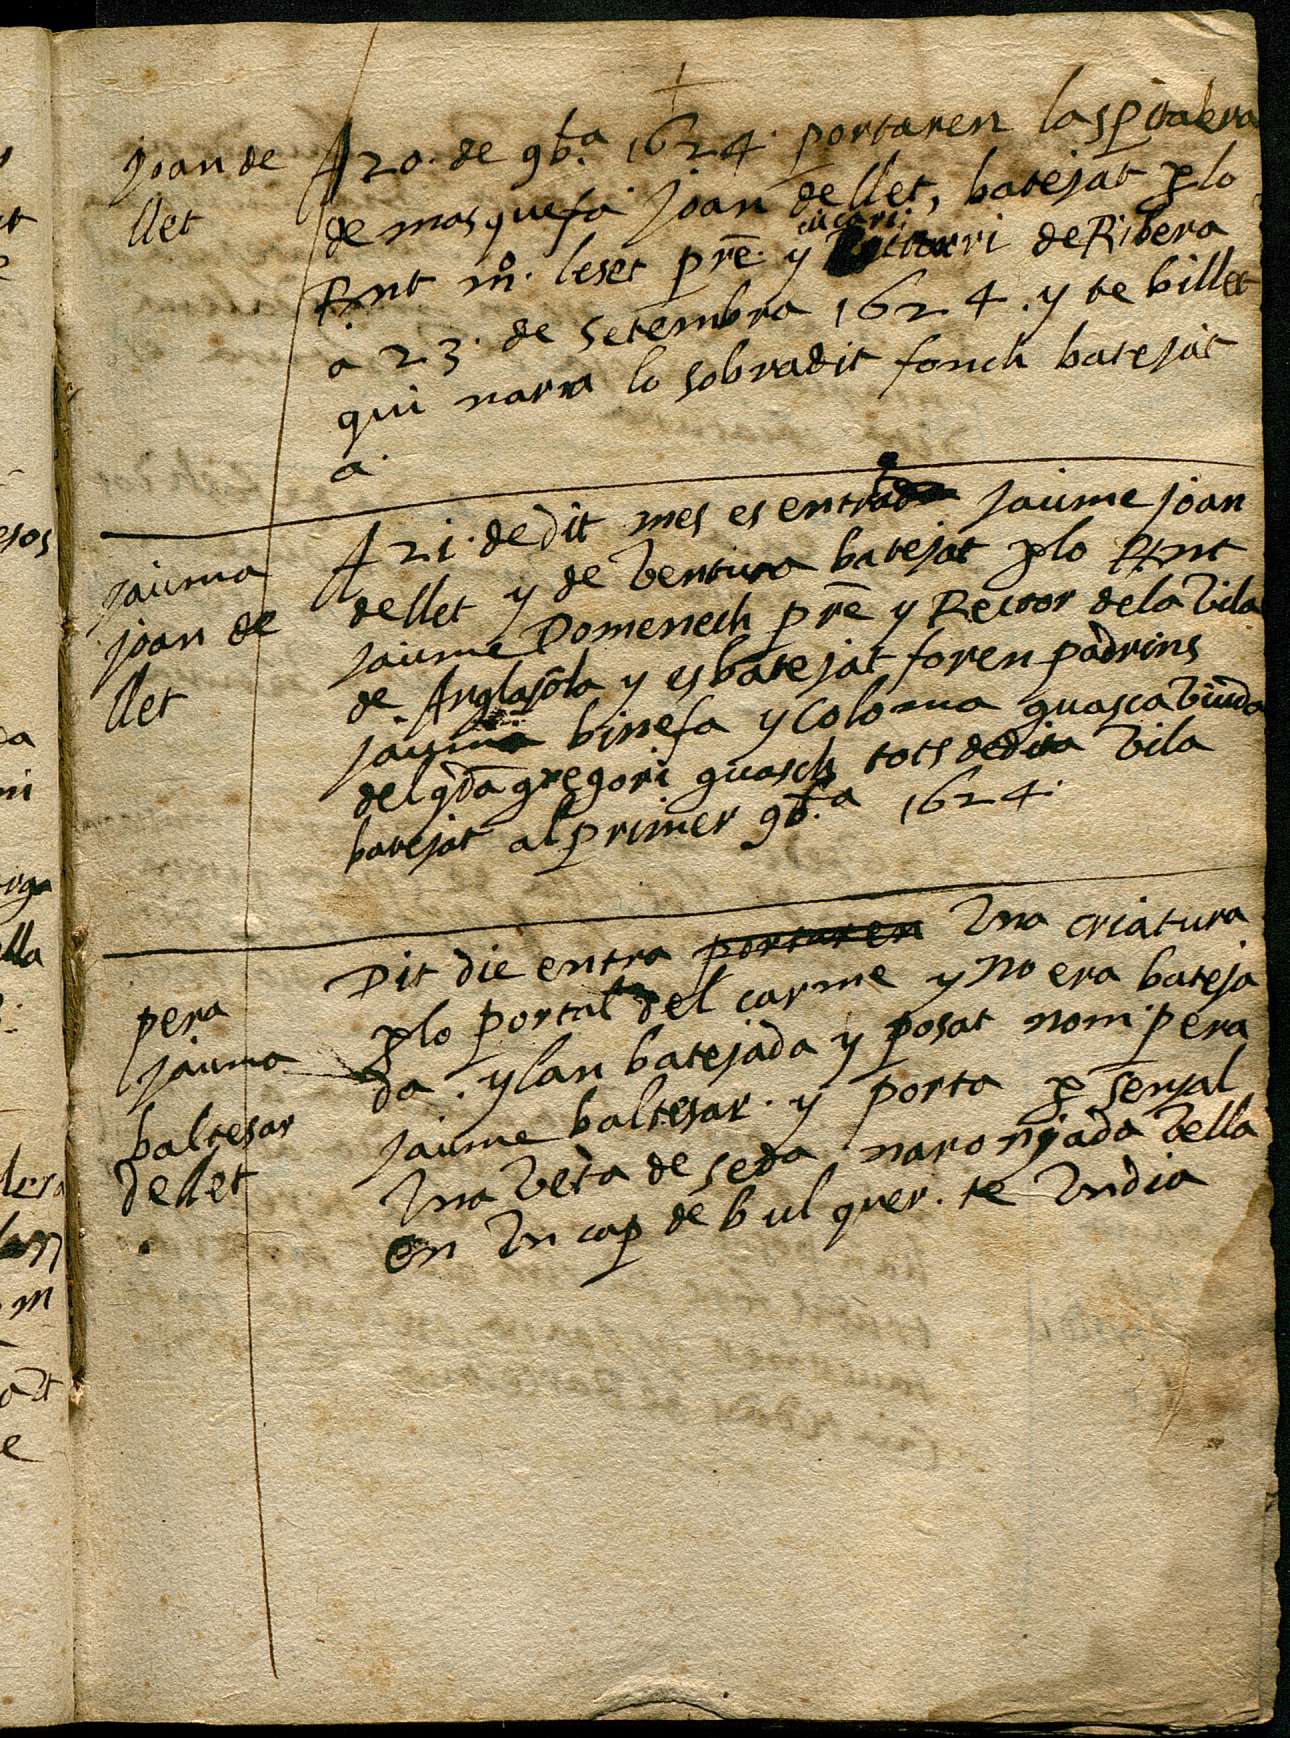 +
joan de
llet
A 20. de 9b.ª 1624. portaren la spitalera
de masquefa joan de llet, batejat p lo
Rnt mº. leset pre. y vicari de Ribera
a 23. de setembra 1624. y te billet
qui narra lo sobradit fonch batejat
a.
jauma
joan de
llet
A 21. de dit mes es entrat jaume joan
de llet y de Ventura batejat p lo Rnt
jaume Domenech pre y Rector de la Vila
de Anglasola y es batejat foren padrins
jauma binefa y Coloma guasca Viuda
del qda gregori guasch tots de dita Vila
batejat al primer 9b.ª 1624.
pera
jauma
baltesar
de llet
Dit die entra portaren Vna criatura
p lo portal del carme y no era bateja
da. y lan batejada y posat nom pera
jaume baltesar. y porta p senyal
Vna Veta de seda naronjada Vella
en Vn cap de bulquer. te Vn dia